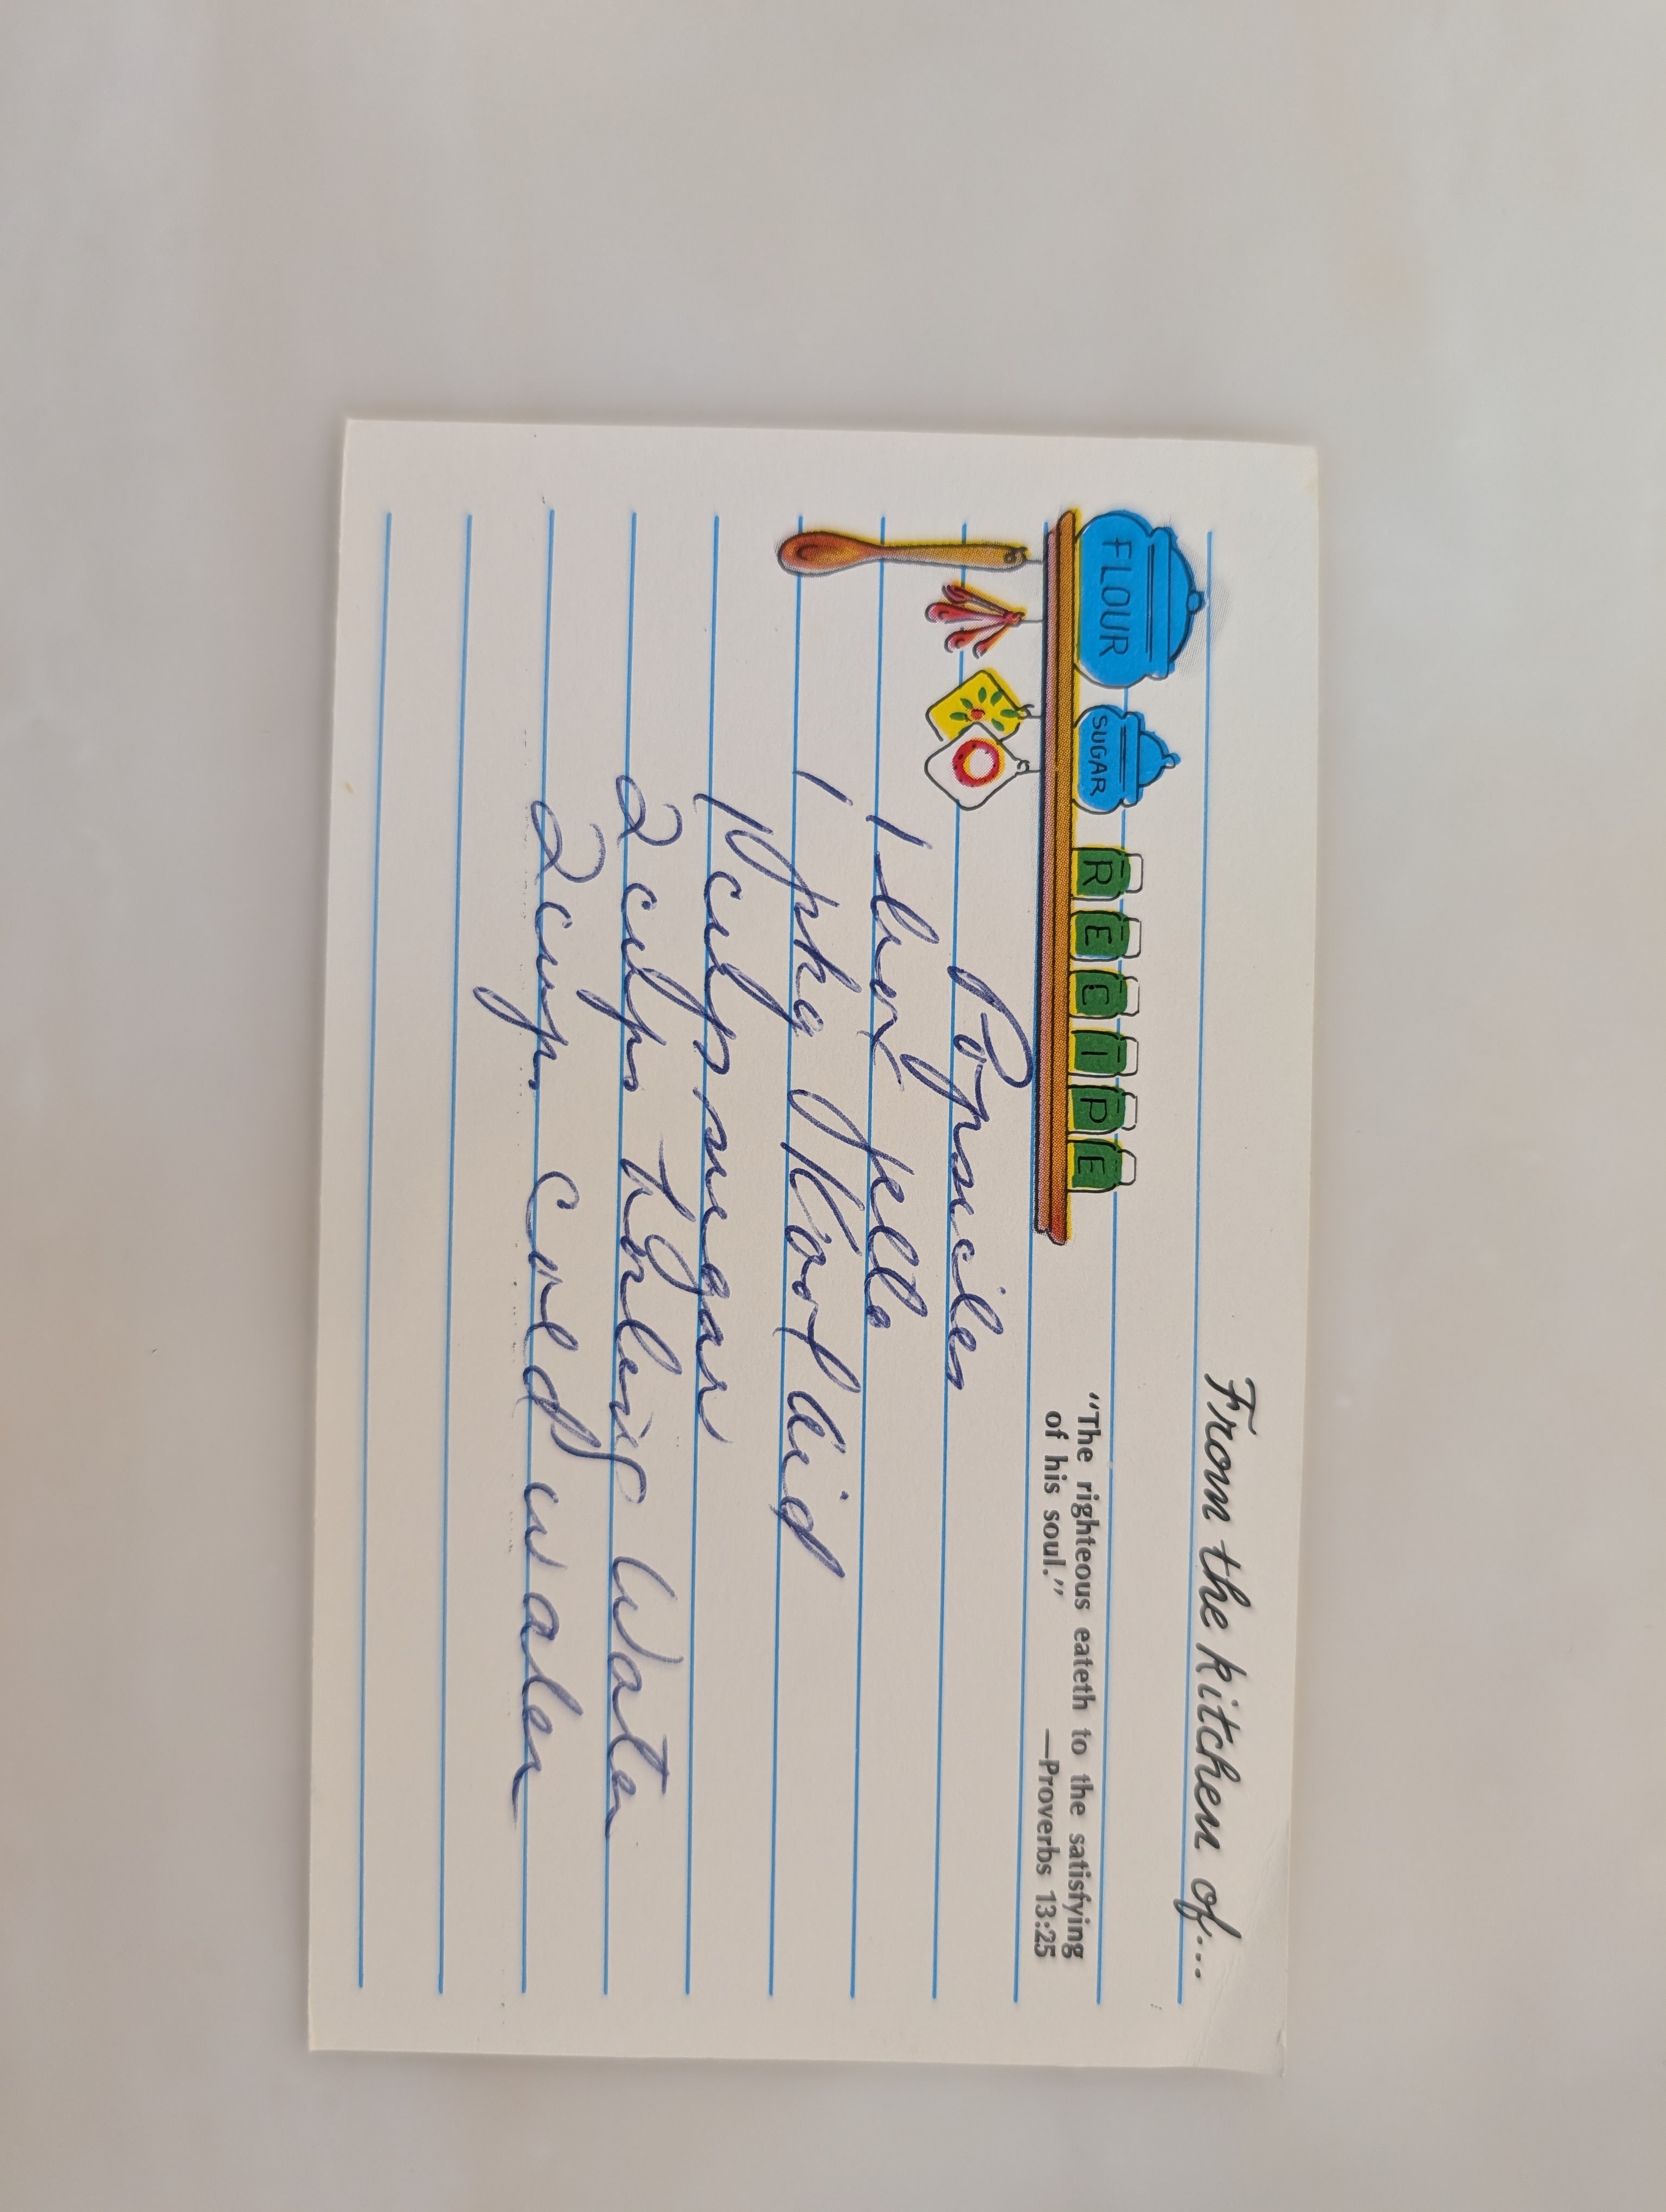 From the kitchen of...
FLOUR
SUGAR
RECIPE
"The righteous eateth to the satisfying
of his soul."
—Proverbs 13:25
Popsicles
1 box Jello
1 pkg Kool Aid
1 cup sugar
2 cups Boiling Water
2 cups cold water